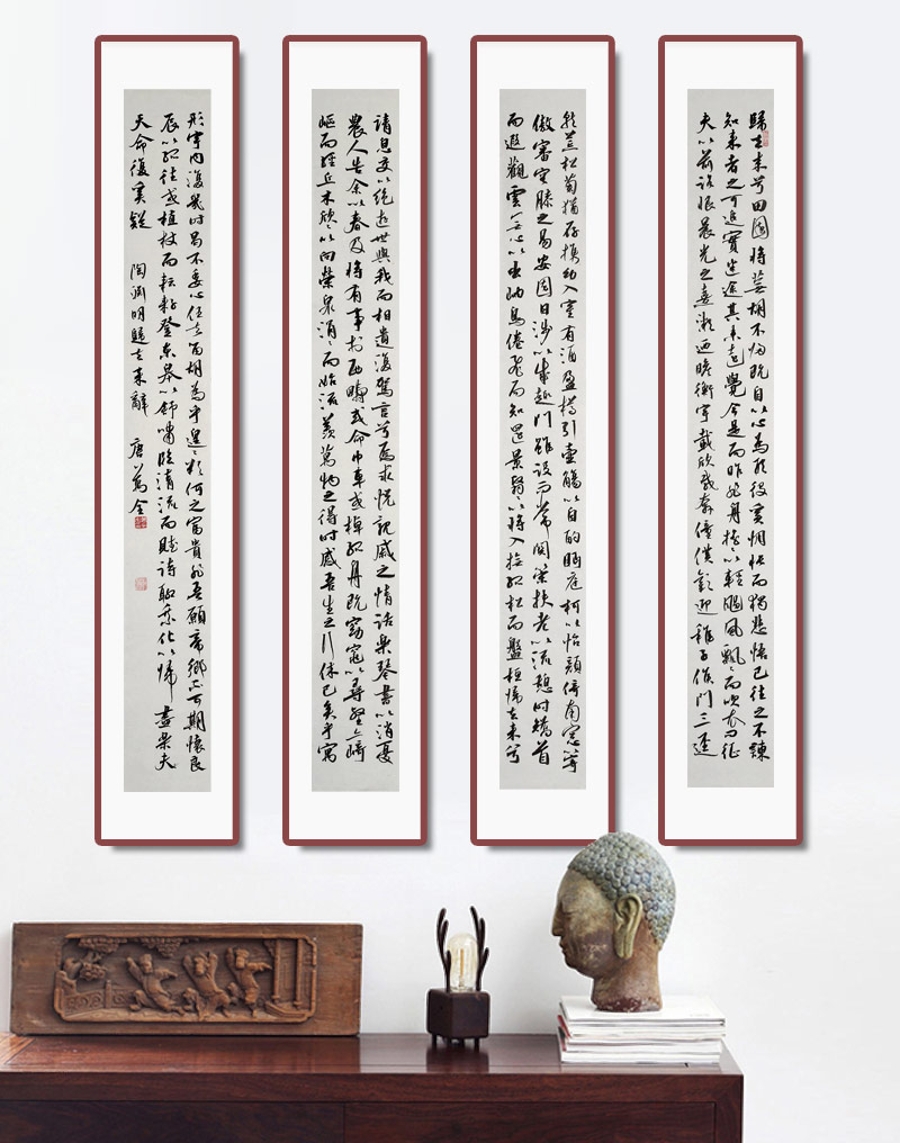 歸去來兮田園將蕪胡不歸既自以心為形役奚惆悵而獨悲悟已往之不諫
知來者之可追實迷途其未遠覺今是而昨非舟搖〻以輕颺風飄〻而吹衣問征
夫以前路恨晨光之熹微迺瞻衡宇載欣載奔僮僕歡迎稚子候門三逕
就荒松菊猶存攜幼入室有酒盈樽引壺觴以自酌眄庭柯以怡顏倚南窓以寄
傲審容膝之易安園日涉以成趣門雖設而常關策扶老以流憩時矯首
而遐觀雲無心以出岫鳥倦飛而知還景翳〻以將入撫孤松而盤桓歸去來兮
請息交以絕遊世與我而相遺復駕言兮焉求悅親戚之情話樂琴書以消憂
農人告余以春及將有事於西疇或命巾車或棹孤舟既窈窕以尋壑亦崎
嶇而經丘木欣〻以向榮泉涓〻而始流羨萬物之得時感吾生之行休已矣乎寓
形宇內復幾時曷不委心任去留胡為乎遑〻欲何之富貴非吾願帝鄉不可期懷良
辰以孤往或植杖而耘耔登東皋以舒嘯臨清流而賦詩聊乘化以歸盡樂夫
天命復奚疑 陶淵明歸去來辭 唐萬全